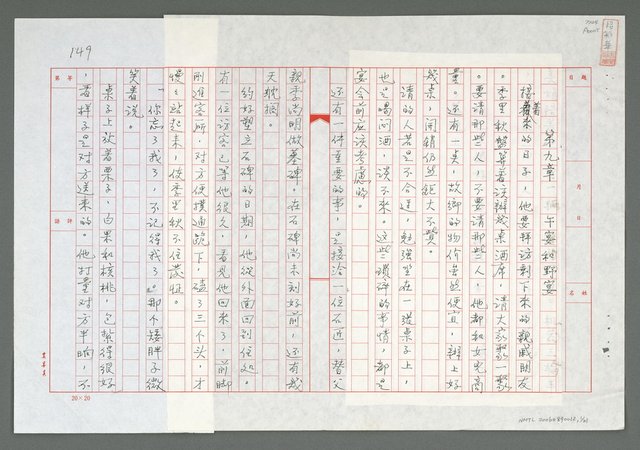 149
第九章 午宴和野宴
接著來的日子，他要拜訪剩下來的親戚朋友
。季里秋盤算著該辦幾桌酒席，請大家聚一聚
。要請那些人，不要請那些人，他都和女兒商
量。還有一桌，故鄉的物價雖然便宜，辦上好
幾桌，開銷仍然絕大不貲。
請的人若是不合適，勉強坐在一張桌子上，
也是喝悶酒，談不來。這些瑣碎的事情，都是
宴會前應該考慮的。
還有一件重要的事，是接洽一位石匠，替父
親季尚明做墓碑。在石碑尚未刻好前，還有幾
天耽擱。
約好塑立石碑的日期，他從外面回到住處。
有一位訪客已等他很久，看見他回來了，前腳
剛進客廳，對方便撲通跪下，磕了三個头，才
慢慢站起來，使季里秋不住發怔。
「你忘了我了，不記得我了。」那個矮胖子微
笑着說。
桌子上放著栗子，白果和核桃，包紮得很好
，看樣子是对方送來的。他打量对方半晌，不
20×20